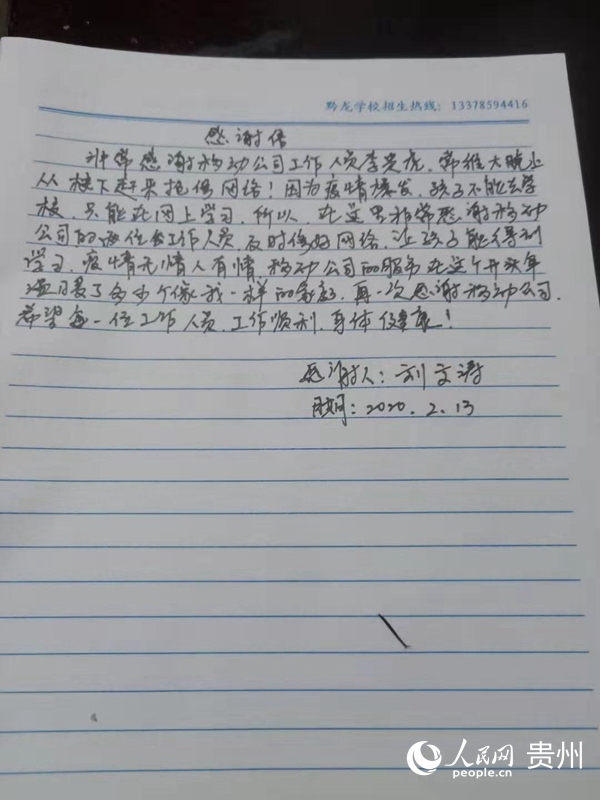 黔龙学校招生热线：13378594416
感谢信
非常感谢移动公司工作人员李光虎、常维大晚上
从楼下赶来抢修网络！因为疫情爆发，孩子不能去学
校，只能在网上学习，所以，在这里非常感谢移动
公司的两位工作人员及时修好网络，让孩子能得到
学习，疫情无情人有情，移动公司的服务在这个开头年
温暖了多少个像我一样的家庭，再一次感谢移动公司，
希望每一位工作人员，工作顺利，身体健康！
感谢人：刘文涛
日期：2020.2.13
人民网 贵州
people.cn